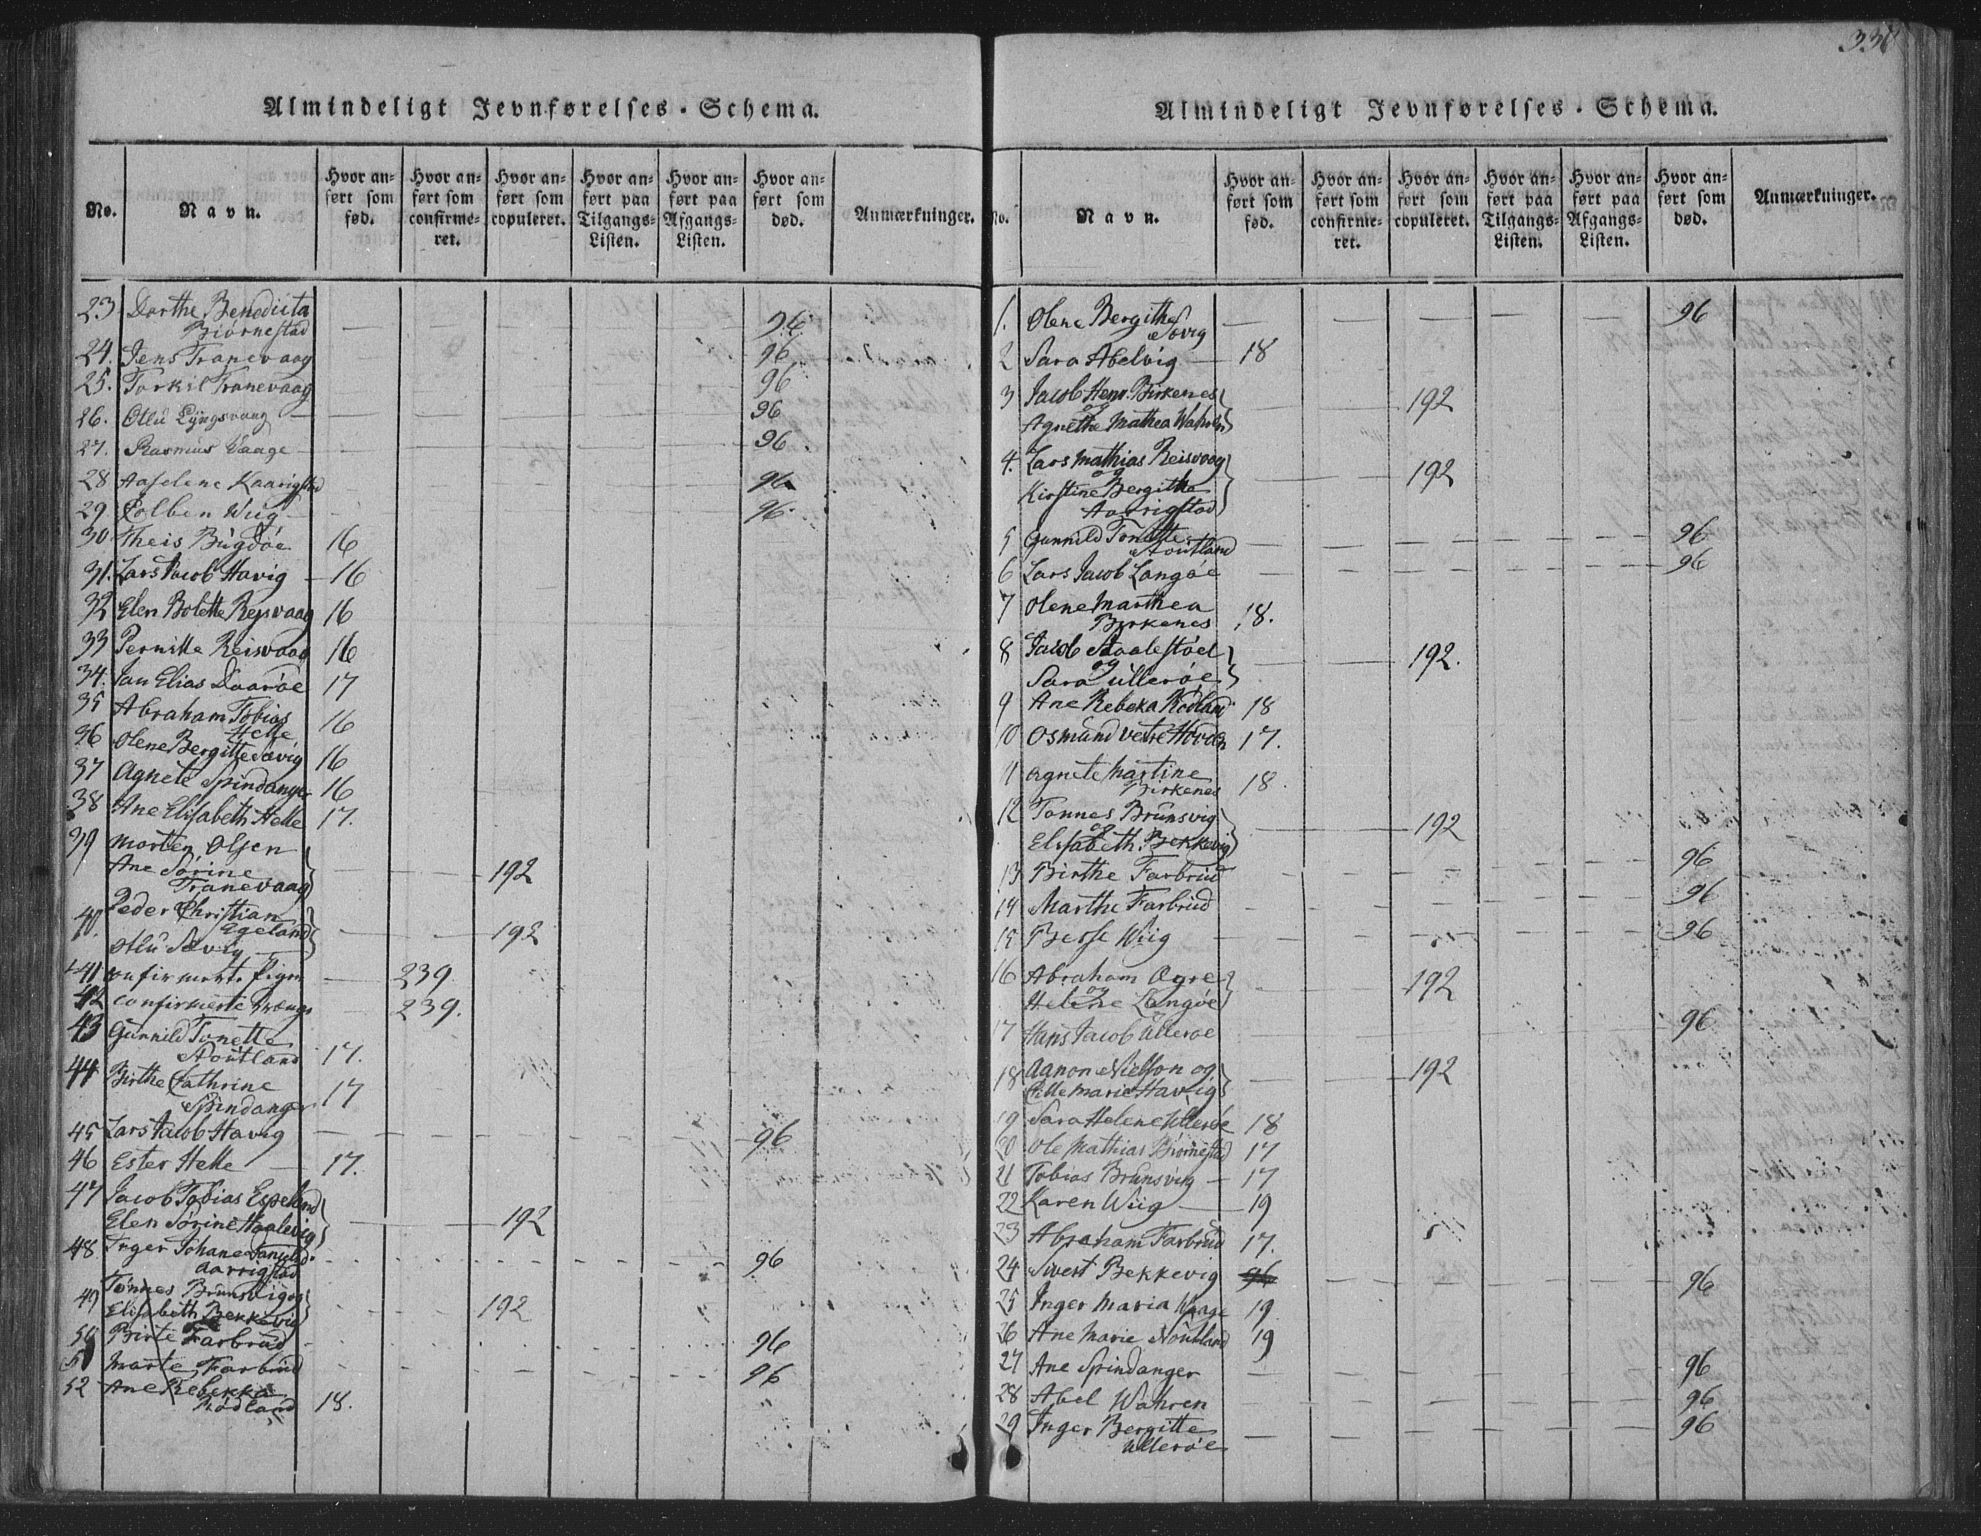 Almindeligt Jevnførelses-Schema.
No. Navn. Hvor anført som fød. Hvor anført som confirmeret. Hvor anført som copuleret. Hvor anført paa Tilgangs-Listen. Hvor anført paa Afgangs-Listen. Hvor anført som død. Anmærkninger.
23 Dorthe Benedicta
Biørnestad 96
24. Jens Tranevaag 96
25. Torkil Tranevaag 96
26. Ollu Lÿngsvaag 96
27. Rasmus Vaage 96
28 Aaselene Kaarigstad 96
29 Colben Wiig 96
30 Theis Bugdøe 16
31. Lars Jacob Havig 16
32 Elen Bolette Rejsvaag 16
33 Pernille Reisvaag 16
34. Jan Elias Daarøe 17
35 Abraham Tobias
Helle 16
36 Olene Bergitte Søvig 16
37 Agnete Spindanger 16
38 Ane Elisabeth Helle 17.
39 Morten Olsen
Ane Sørine
Tranevaag 192
40. Peder Christian
Egeland 192
Ollu Søvig
41. 239.
42 confirmerte 239.
43 Gunnild Tonette
Stoutland 17.
44 Birthe Cathrine
Spindanger 17
45 Lars Jacob Havig 96
46 Ester Helle 17.
47 Jacob Tobias Espeland
Elen Sørine Haalevig 192
48 Inger Johane
Aarrigstad 96
49 Tønnes Brunsvig og
Elisabeth Bekkevig 192
50 Birte Farbrud 96
51 Marte Farbrud 96
52 Ane Rebekka
Rødland 18.
334
Almindeligt Jevnførelses-Schema.
No. Navn. Hvor anført som fød. Hvor anført som confirmeret. Hvor anført som copuleret. Hvor anført paa Tilgangs-Listen. Hvor anført paa Afgangs-Listen. Hvor anført som død. Anmærkninger.
1. Olene Bergithe
Søvig 96
2 Sara Abelvig 18
3 Jacob Henr. Birkenes
og 192
Agnethe Mathea Wahren
4. Lars Mathias Reisvaag
og 192
Kirstine Bergitha
Aarrigstad
5 Gunnild Tonette
Stoutland 96
6 Lars Jacob Langøe 96
7 Olene Marthea
Byrkenes 18.
8 Jacob Staalestøel
og 192.
Sara Ullerøe
9 Ane Rebeka Rødland 18
10 Osmund Vetre Hovden 17.
11 Agnete Martine
Birkenes 18.
12 Tonnes Brunsvig
og 192
Elisabeth Bekkevig
13 Birthe Farbrud 96
14 Marthe Farbrud 96
15 Berse Wiig 96
16 Abraham Ogre
og 192
Helene Langøe
17 Hans Jacob Ullerøe 96
18 Aanon Nielson og
Marie Havig 192
19 Sara Helene Ullerøe 18
20 Ole Mathias Biørnestad 17
21 Tobias Brunsvig 17
22 Karen Wiig 19
23 Abraham Farbrud 17.
24 Sivert Bekkevig 96 96
25 Inger Maria Waage 19
26 Ane Marie Stoutland 19
27 Ane Spindanger 96
28 Abel Wahren 96
29 Inger Bergitte
Ullerøe 96